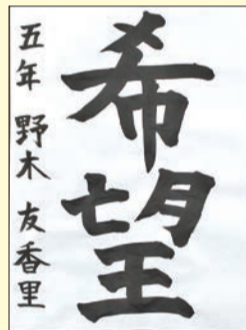 希望
五年 野木 友香里